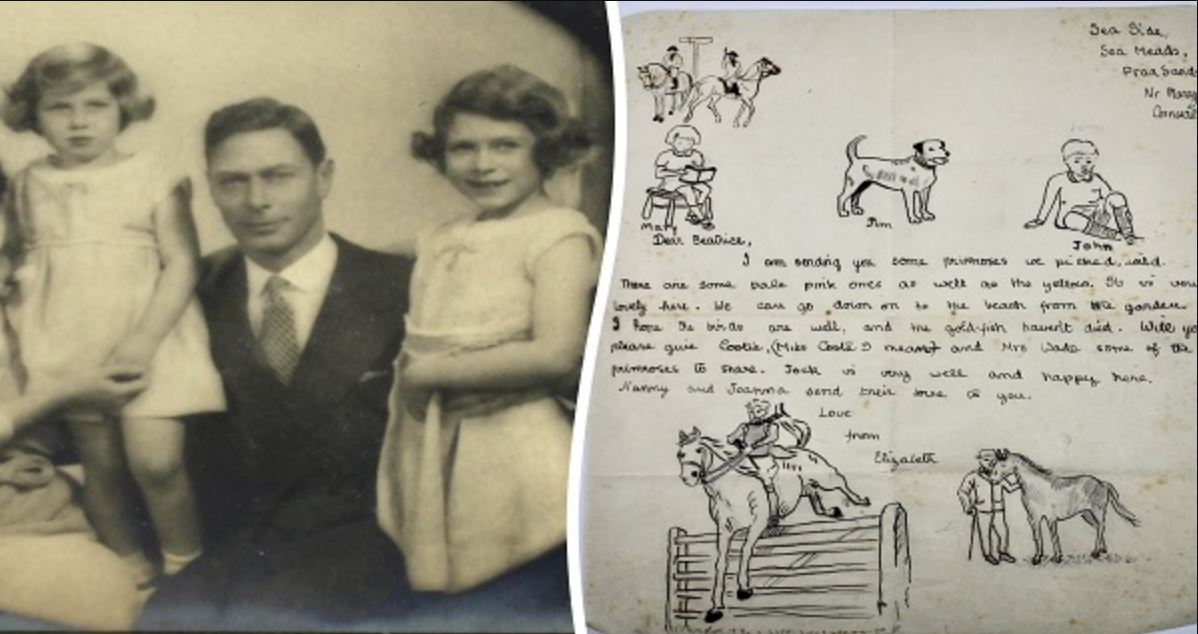 Sea Side,
Sea Meads,
Praa Sands
Nr
Mary
Jim
John
Dear Beatrice,
I am sending you some primroses we picked, wild.
There are some pale pink ones as well as the yellow. It is very
lovely here. We can go down on to the beach from the garden.
I hope the birds are well, and the gold-fish haven't died. Will yo
please give Cootie, (Miss Coote I mean) and Mrs Wade some of the
primroses to share. Jock is very well and happy here.
Nanny and Joanna send their love to you.
Love
from
Elizabeth